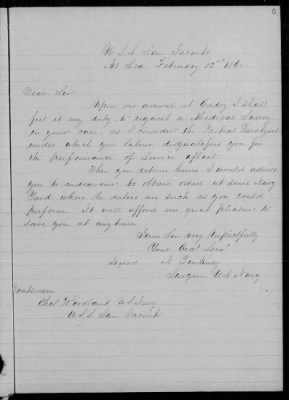 6
U.S.S. San Jacinto
At Sea February 22nd 1860
Dear Sir
Upon our arrival at Cadiz I shall
feel it my duty to request a Medical Survey
in your case, as I consider the Partial Paralysis
under which you labour disqualifies you for
the performance of Service afloat.
When you return home I would advise
you to endeavour to obtain orders at some Navy
Yard where the duties are such as you could
perform. It will afford me great pleasure to
serve you at any time
I am Sir very respectfully
Your Obdt Servt
Signed
Surgeon U.S. Navy
Chas Woodland U.S. Navy
U.S.S. San Jacinto